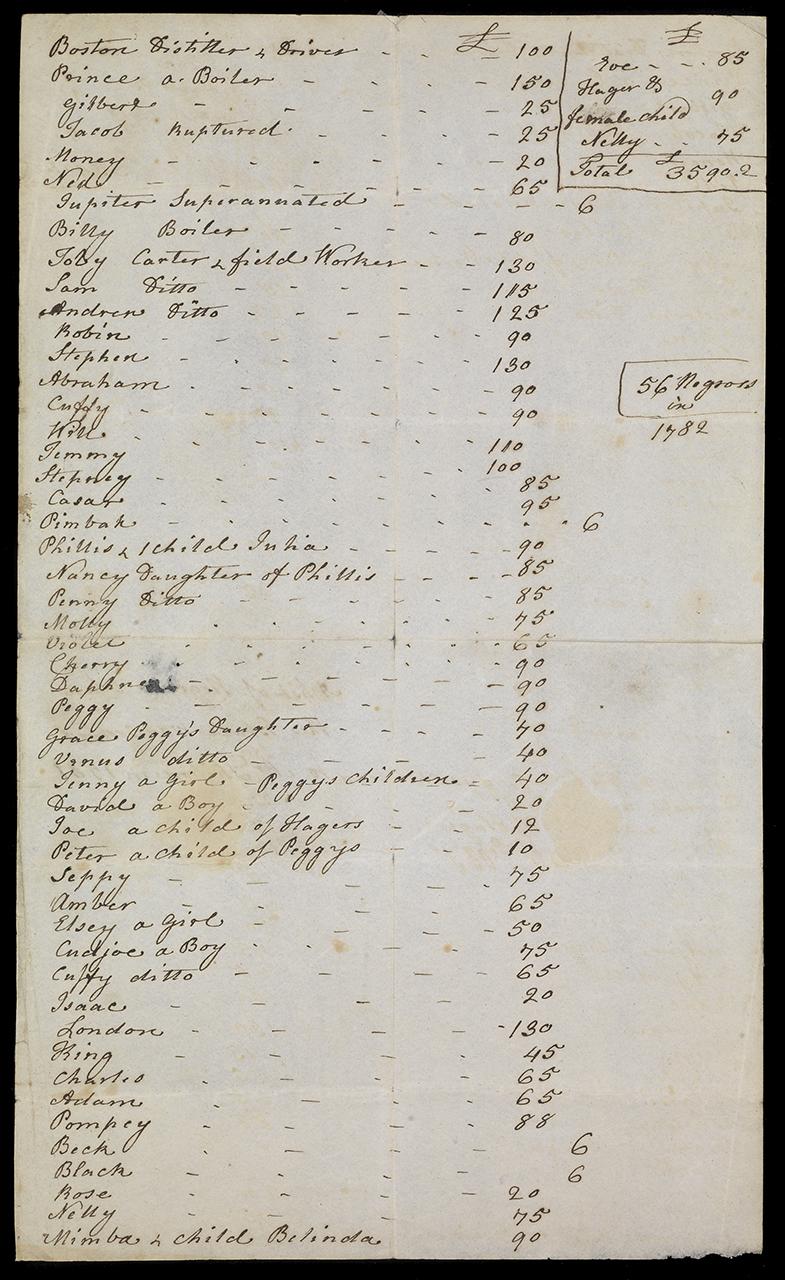 £
Boston Distiller & Driver - - - 100
Prince a Boiler - - - - 150
Gilbert - - - - 25
Jacob Ruptured - - - 25
Money - - - - - 20
Ned - - - - - 65
Jupiter Superannuated - - - - - 6
Billy Boiler - - - - - 80
Toby Carter & field Worker - - 130
Sam Ditto - - - - - 115
Andrew Ditto - - - - - 125
Robin - - - - - 90
Stephen - - - - - 130
Abraham - - - - - 90
Cuffy - - - - - 90
Will - - - - - 110
Jemmy - - - - - 100
Stepney - - - - - 85
Casar - - - - - 95
Pimbah - - - - - 6
Phillis & 1 child Julia - - - - 90
Nancy Daughter of Phillis - - - 85
Penny Ditto - - - - 85
Molly - - - - - 75
Violet - - - - - 65
Cherry - - - - - 90
Daphne - - - - - 90
Peggy - - - - - 90
Grace Peggy's Daughter - - - - 70
Venus ditto - - - - 40
Jenny a Girl - Peggys Children - 40
David a Boy - - - - 20
Joe a child of Hagers - - - 12
Peter a child of Peggys - - - 10
Seppy - - - - - 75
Amber - - - - - 65
Elsey a Girl - - - - 50
Cudjoe a Boy - - - - 75
Cuffy ditto - - - - 65
Isaac - - - - - 20
London - - - - - 130
King - - - - - 45
Charles - - - - - 65
Adam - - - - - 65
Pompey - - - - - 88
Beck - - - - - 6
Black - - - - - 6
Rose - - - - - 20
Nelly - - - - - 75
Mimba & child Belinda 90
£
Eve - - - 85
Hager &
female child 90
Nelly - - 75
Total £ 3590.2
56 Negroes
in
1782